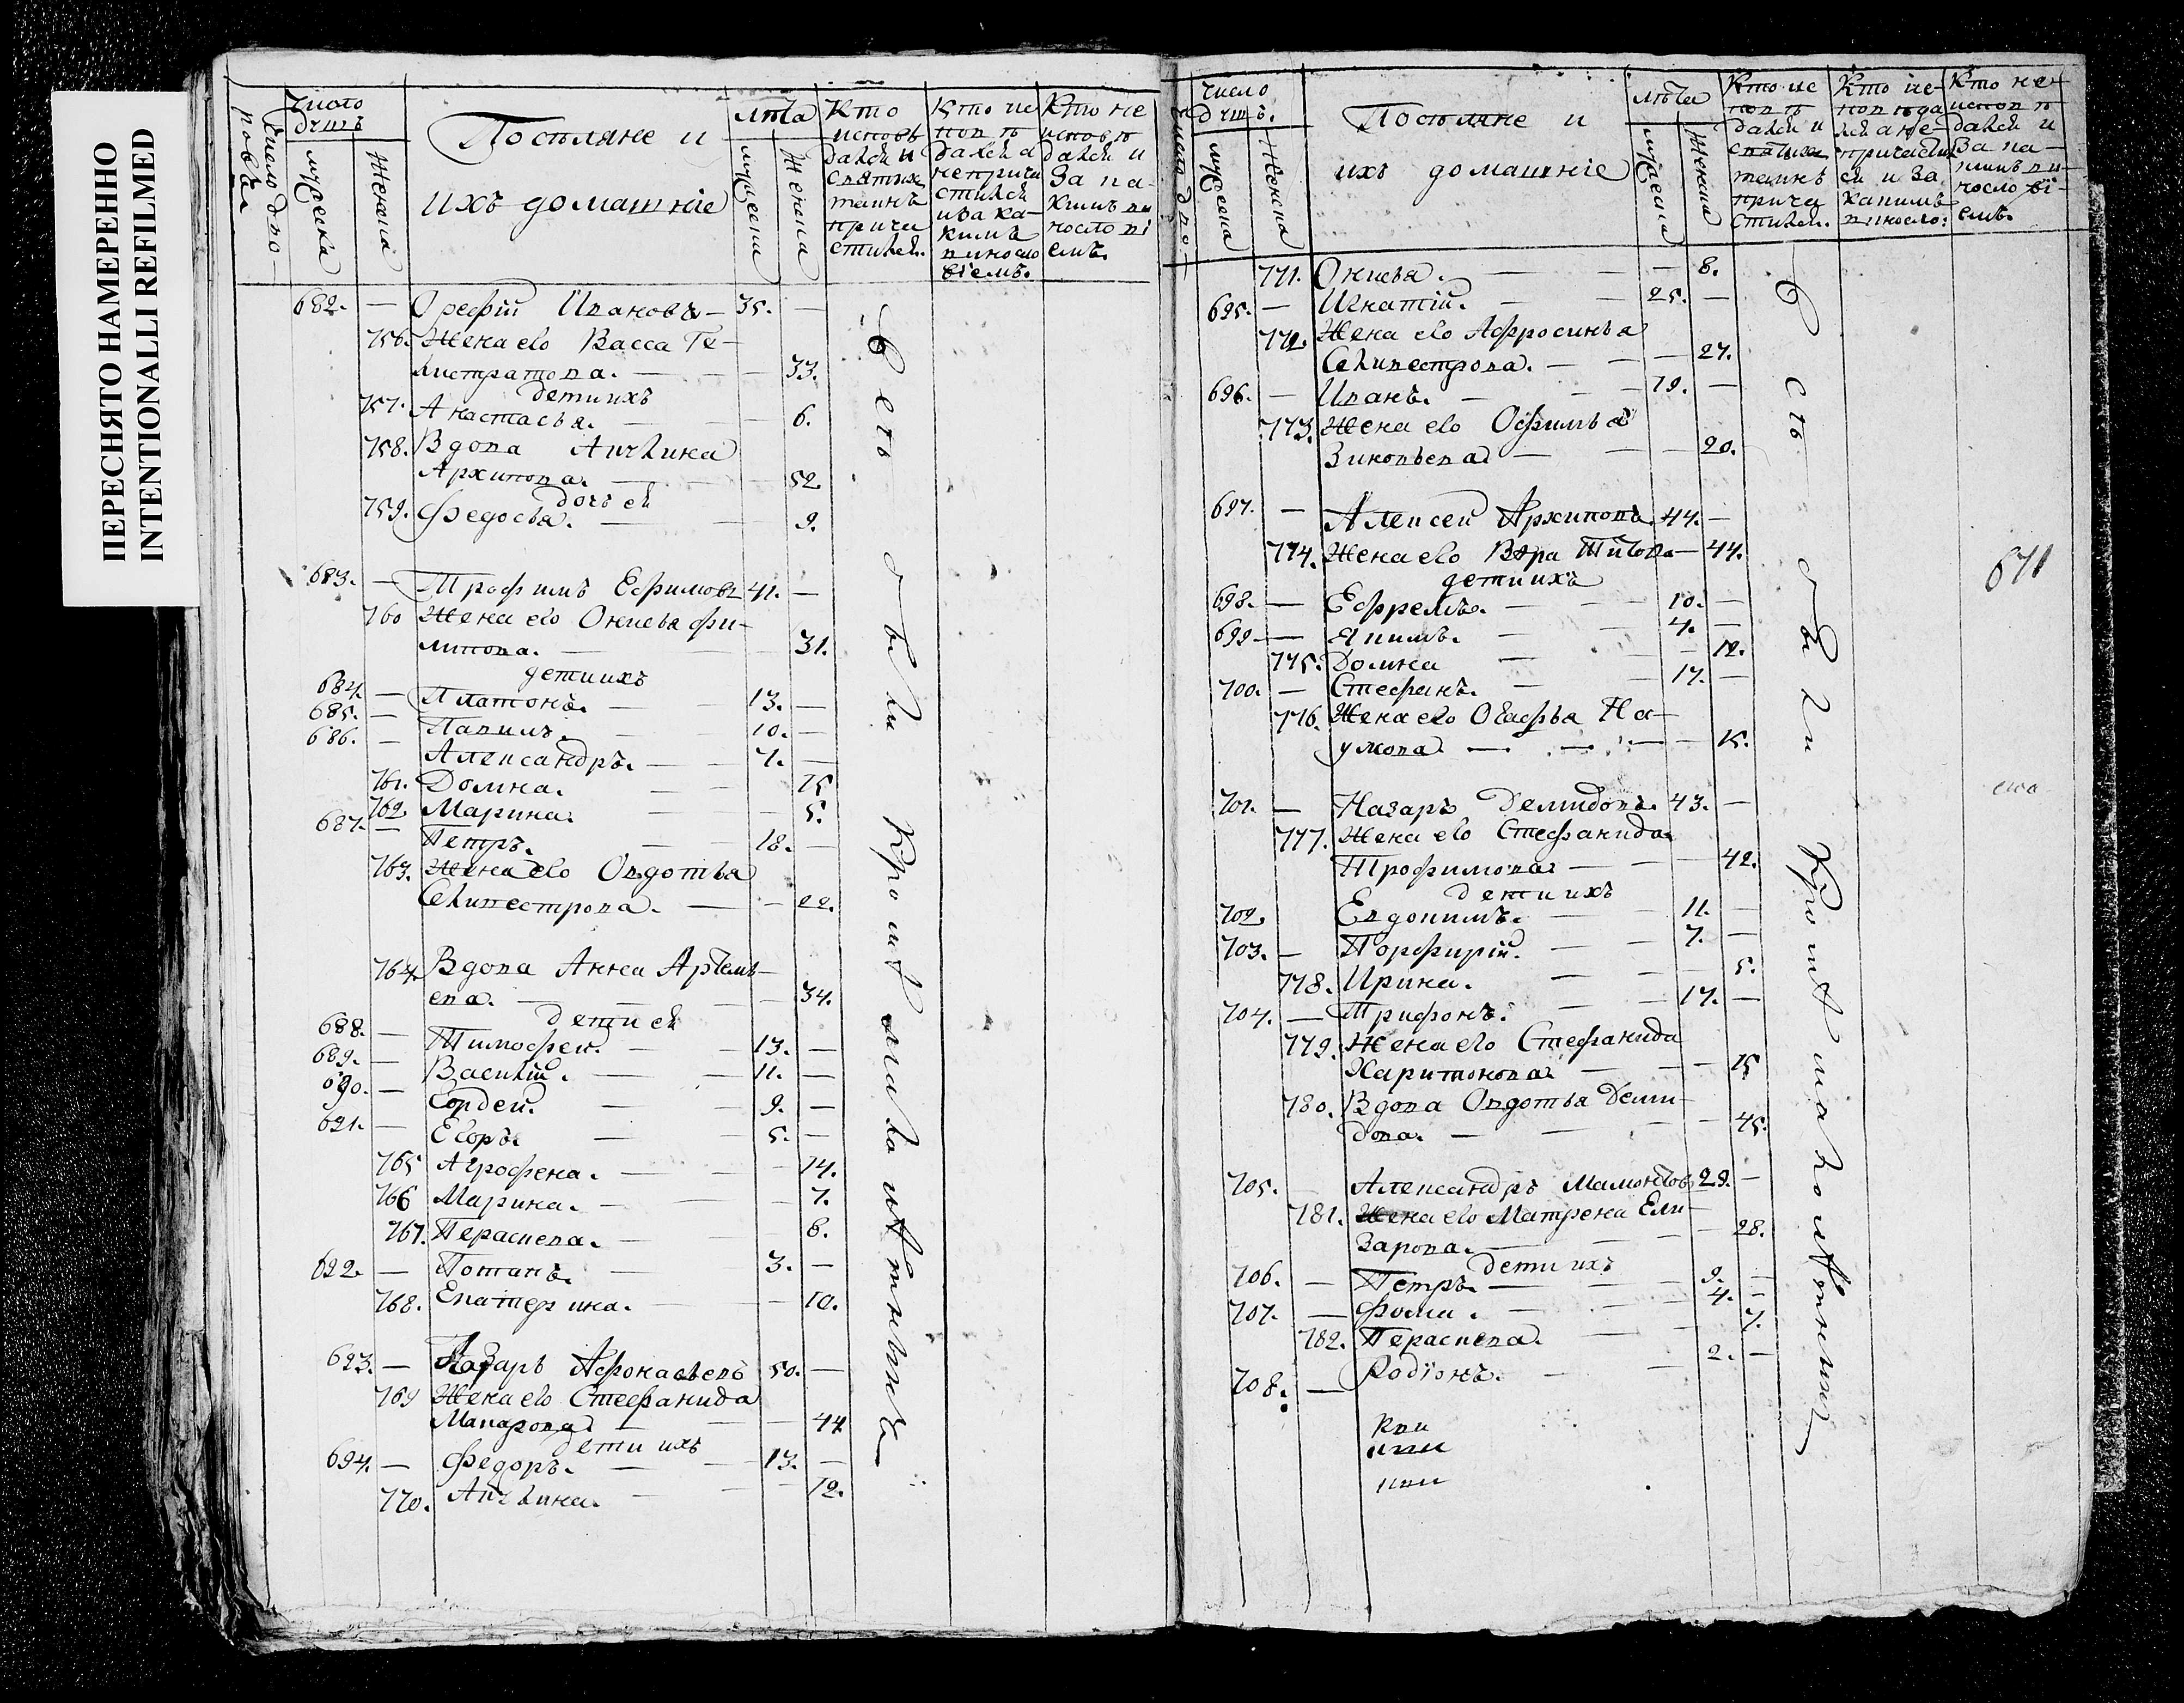 ПЕРЕСНЯТО НАМЕРЕННО
INTENTIONALLI REFILMED
Число дво
ровъ
Число
душъ
мужеска
женска
Поселяне и
ихъ домашніе
лѣта
мужеска
женска
Кто
исповѣ
дался и
святыхъ
таинъ
прича
стился.
Кто ис
повѣ
дался а
не прича
стился
и за ка-
кимъ
виносло
віемъ.
Кто не
исповѣ
дался и
за ка-
кимъ ви
носло ві
емъ.
682. — Орефій Ивановъ — 35. —
756. Жена его Васса Ге-
листратова. — 33.
дети ихъ
757. Анастасья. — 6.
758. Вдова Акулина
Архипова. — 52.
дочь ей
759. Федосья. — 9.
683. — Трофимъ Ефимовъ 41. —
760 Жена его Оксенья Фи-
липова. — 31.
дети ихъ
684. — Платонъ. — 13. —
685. — Павилъ. — 10. —
686. — Александръ. — 7. —
761. Домна. — 15
762 Марина. — 5.
687. — Петръ. — 18. —
763. Жена его Овдотья
Селивестрова. — 22.
764 Вдова Анна Артемь-
ева. — 34.
дети ей
688. — Тимофей. — 13. —
689. — Василій. — 11. —
690. — Гордей. — 9. —
691. — Егоръ. — 5. —
765 Агрофена. — 14.
766 Марина. — 7.
767. Параскева. — 6.
692. — Потапъ. — 3. —
768. Екатерина. — 10.
693. — Назаръ Афонасьевъ 50. —
769 Жена его Стефанида
Макарова — 44
дети ихъ
694. — Федоръ. — 13. —
770. Акулина. — 12.
Всѣ были кромѣ малолѣтныхъ
Число дво
Число
душъ.
мужеска
женска
Поселяне и
ихъ домашніе
лѣта
мужеска
женска
Кто ис
повѣ
дался и
святыхъ
таинъ
прича
стился.
Кто ис-
повѣда
лся а не-
причастил
ся и за
какимъ
виносло:
Кто не
исповѣ
дался и
за ка-
кимъ ви-
носло ві-
емъ.
771. Оксенья. — 8.
695. — Игнатій. — 25. —
772. Жена его Афросинья
Селивестрова. — 27.
696. — Иванъ. — 19. —
773. Жена его Офимья
Зиновьева — 20.
697. — Алексей Архиповъ 44. —
774. Жена его Вѣра Титова — 44.
дети ихъ
698. — Ефремъ. — 10. —
699 — Якимъ. — 4. —
775. Домна — 12.
700. — Стефанъ. — 17. —
776. Жена его Огафья На-
умова — 15.
701. — Назаръ Демидовъ. 43. —
777. Жена его Стефанида
Трофимова — 42.
дети ихъ
702. Евдокимъ. — 11. —
703. — Порфирій. — 7. —
778. Ирина. — 5.
704. — Трифонъ. — 17. —
779. Жена его Стефанида
Харитонова — 15
780. Вдова Овдотья Деми-
дова. — 45.
705. — Александръ Мамонтов 29. —
781. Жена его Матрена Ели-
зарова. — 28.
дети ихъ
706. — Петръ. — 9. —
707. — Фома. — 4. —
782. Параскева. — 7.
708. — Родіонъ. — 2. —
Всѣ были кромѣ малолѣтныхъ
671